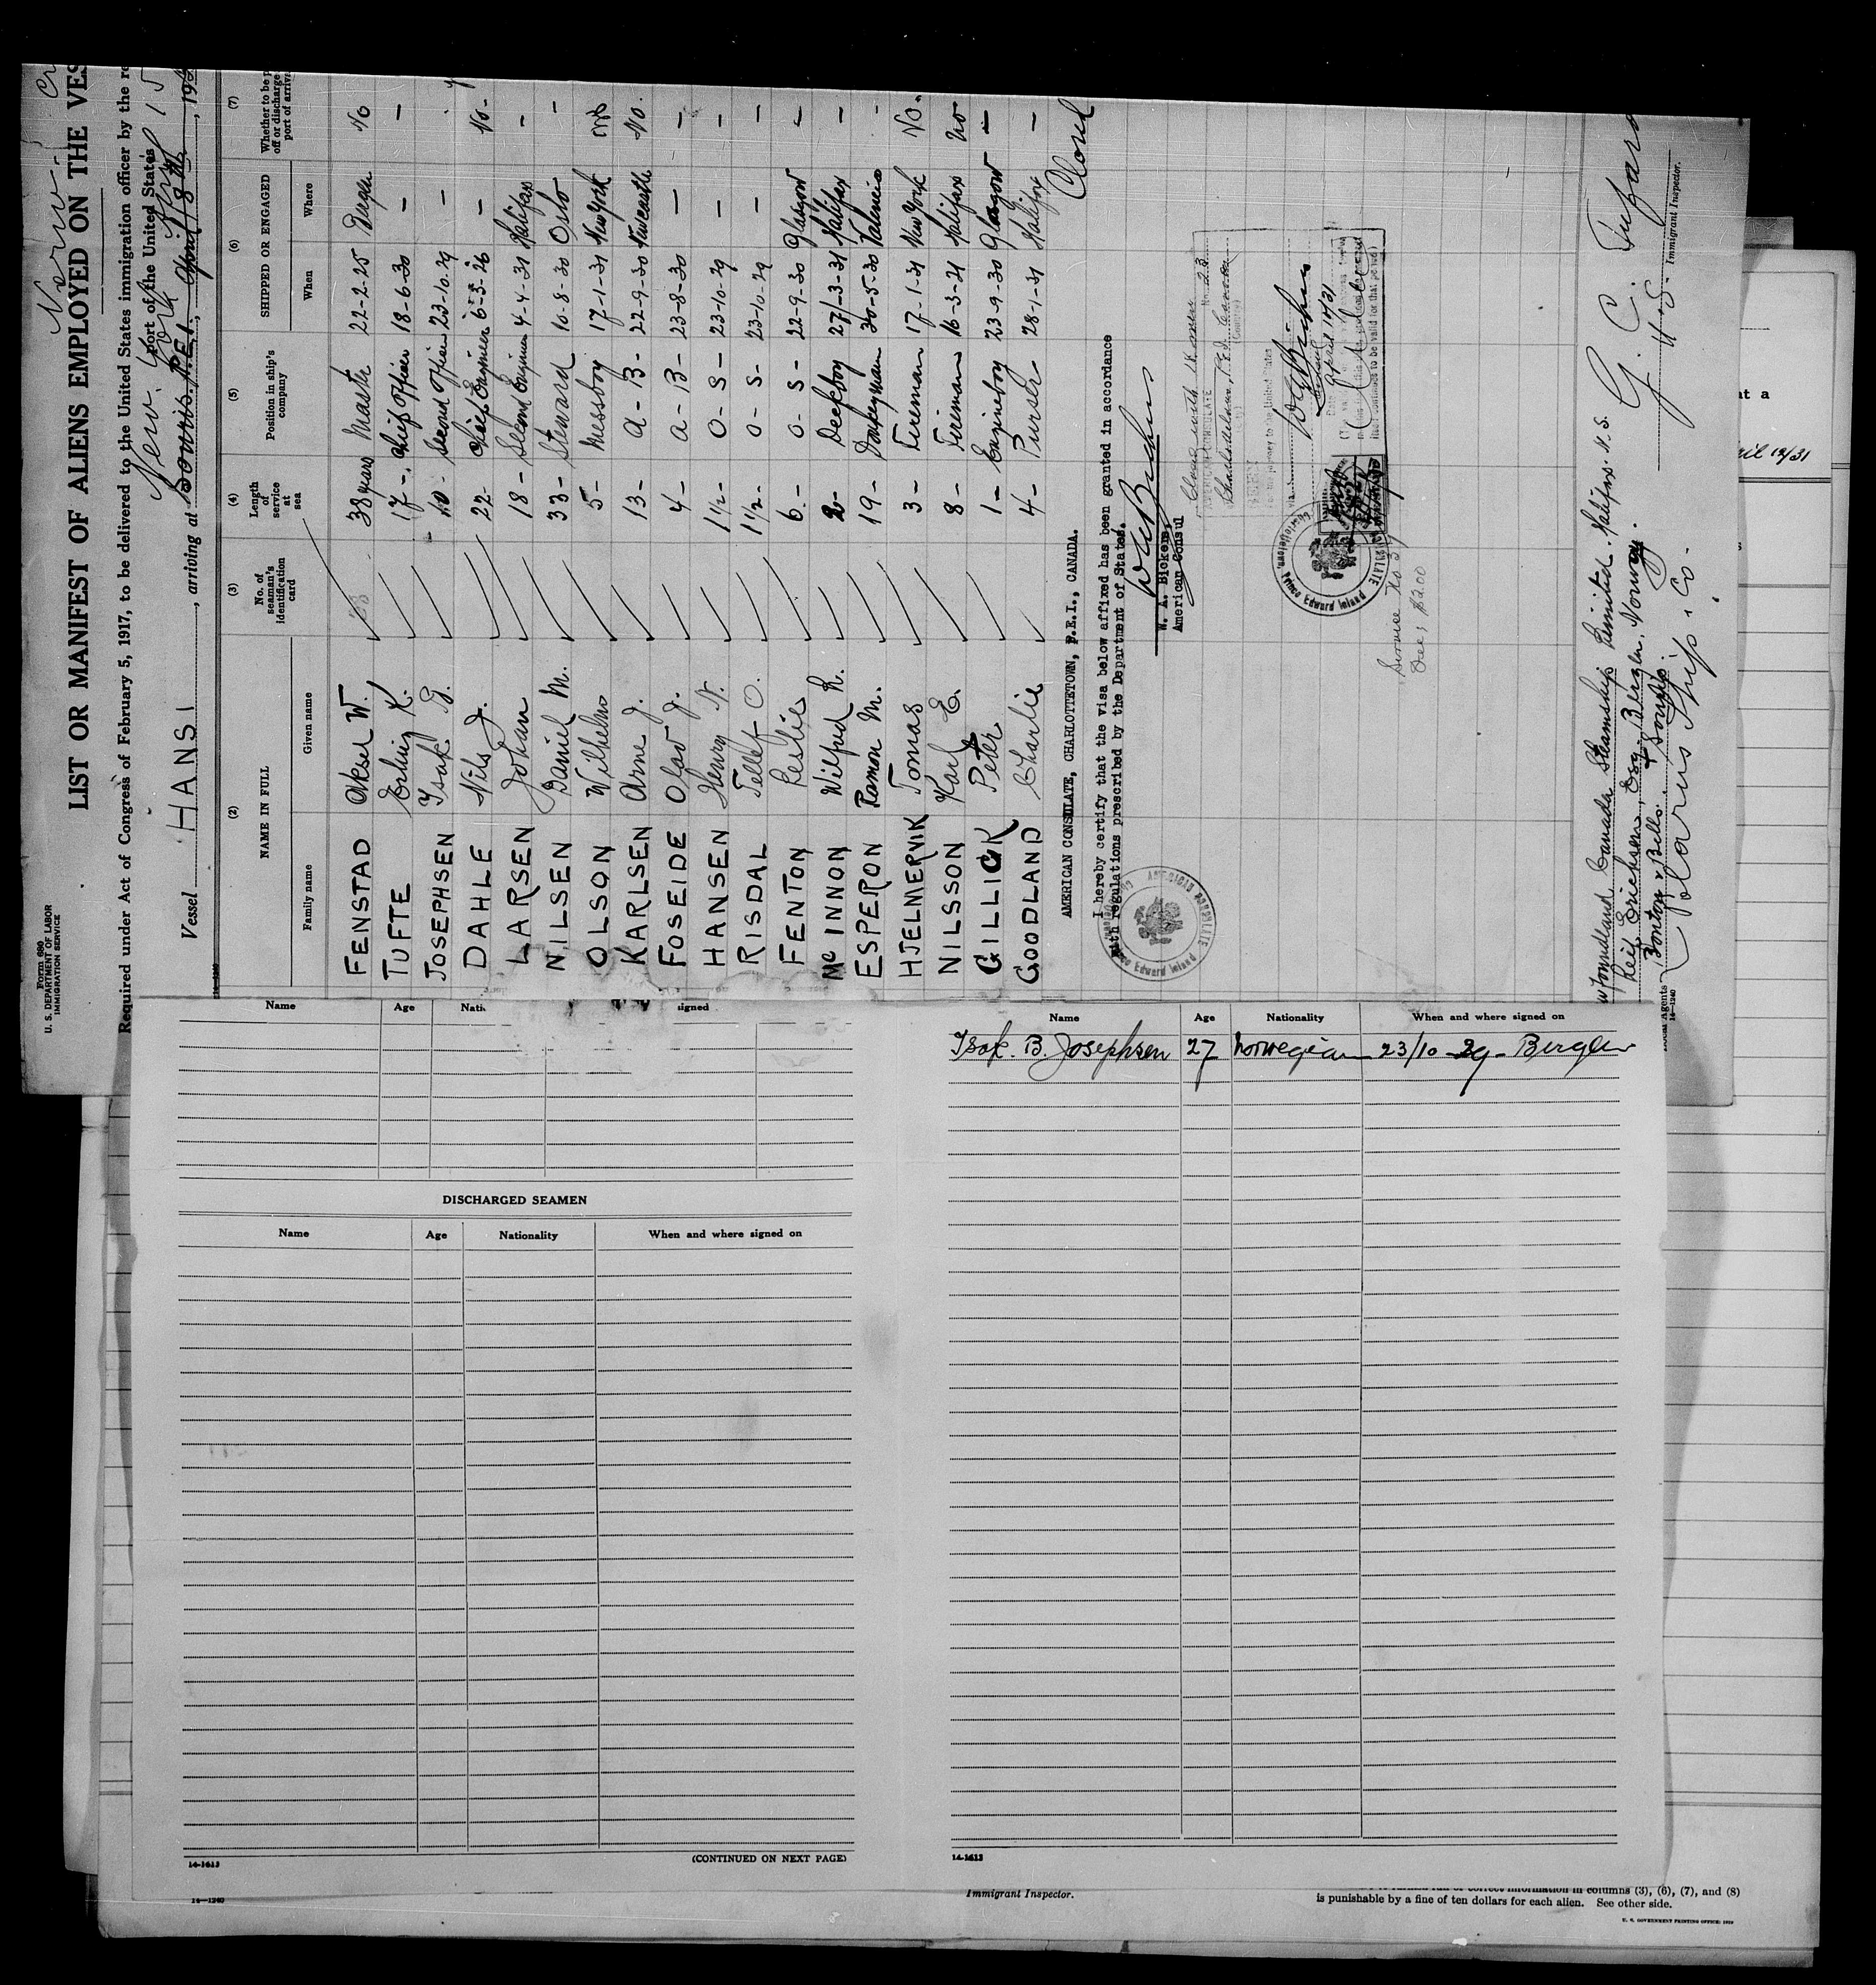 Form 680
U. S. DEPARTMENT OF LABOR
IMMIGRATION SERVICE
LIST OR MANIFEST OF ALIENS EMPLOYED ON THE VES
Required under Act of Congress of February 5, 1917, to be delivered to the United States immigration officer by the re
port of the United States
New York April 15
Vessel HANSI, arriving at Souris. P.E.I., April 8th, 19
(2) (3) (4) (5) (6) (7)
NAME IN FULL
No. of seaman's identification card
Length of service at sea
Position in ship's company
SHIPPED OR ENGAGED
Whether to be p
off or discharge
port of arriva
Family name Given name When Where
FENSTAD Aksel W. 38 years Master 22-2-25 Bergen No
TUFTE Erling K. 17 - Chief Officer 18-6-30 - -
JOSEPHSEN Isak B. 10 - Second Officer 23-10-29
DAHLE Nils J. 22 - Chief Engineer 6-3-26 - No -
LARSEN Johan 18 - Second Engineer 4-4-31 Halifax -
NILSEN Daniel M. 33 - Steward 10-8-30 Oslo -
OLSON Wilhelm 5 - Messboy 17-1-31 New York
KARLSEN Arne J. 13 - A - B - 22-9-30 Newcastle No.
FOSEIDE Olav J. 4 - A - B - 23-8-30 - -
HANSEN Henry N. 1½ - O - S - 23-10-29 - -
RISDAL Tellef O. 1½ - O - S - 23-10-29 - -
FENTON Leslie 6 - O - S - 22-9-30 Glasgow -
Mc INNON Wilfred R. 2 - Deckboy 27-3-31 Halifax -
ESPERON Ramon M. 19 - Donkeyman 30-5-30 Valencia -
HJELMERVIK Tomas 3 - Fireman 17-1-31 New York No.
NILSSON Karl E. 8 - Fireman 16-3-21 Halifax No
GILLICK Peter 1 - Engineboy 23-9-30 Glasgow -
GOODLAND Charlie 4 - Purser 28-1-31 Halifax -
Closed
AMERICAN CONSULATE, CHARLOTTETOWN, P.E.I., CANADA.
I hereby certify that the visa below affixed has been granted in accordance
with regulations prescribed by the Department of States.
W. A. Bickers
American Consul
Closed with 18 names
AMERICAN CONSULATE
No. 23
Charlottetown, P.E.I. Canada
SEEN
April 10/31
AMERICAN CONSULATE
Charlottetown, Prince Edward Island
Service No 37
Fee, $2.00
Newfoundland Canada Steamship Limited. Halifax. N.S.
Leif Erichsen, Esq. Bergen. Norway.
Polarus Ship. Co.
Local Agents
U. S. Immigrant Inspector.
14-1240
Name Age Nati signed
DISCHARGED SEAMEN
Name Age Nationality When and where signed on
14-1613
(CONTINUED ON NEXT PAGE)
Name Age Nationality When and where signed on
Isak. B. Josephsen 27 Norwegian 23/10-29- Bergen
14-1613
14-1240
Immigrant Inspector.
correct information in columns (3), (6), (7), and (8)
is punishable by a fine of ten dollars for each alien. See other side.
U. S. GOVERNMENT PRINTING OFFICE: 1929